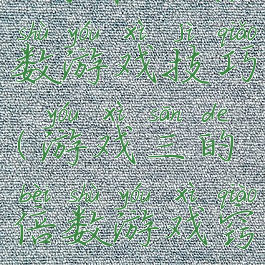 shù yóu xì jì qiǎo
数游戏技巧
yóu xì sān de
(游戏三的
bèi shù yóu xì qiào
倍数游戏窍